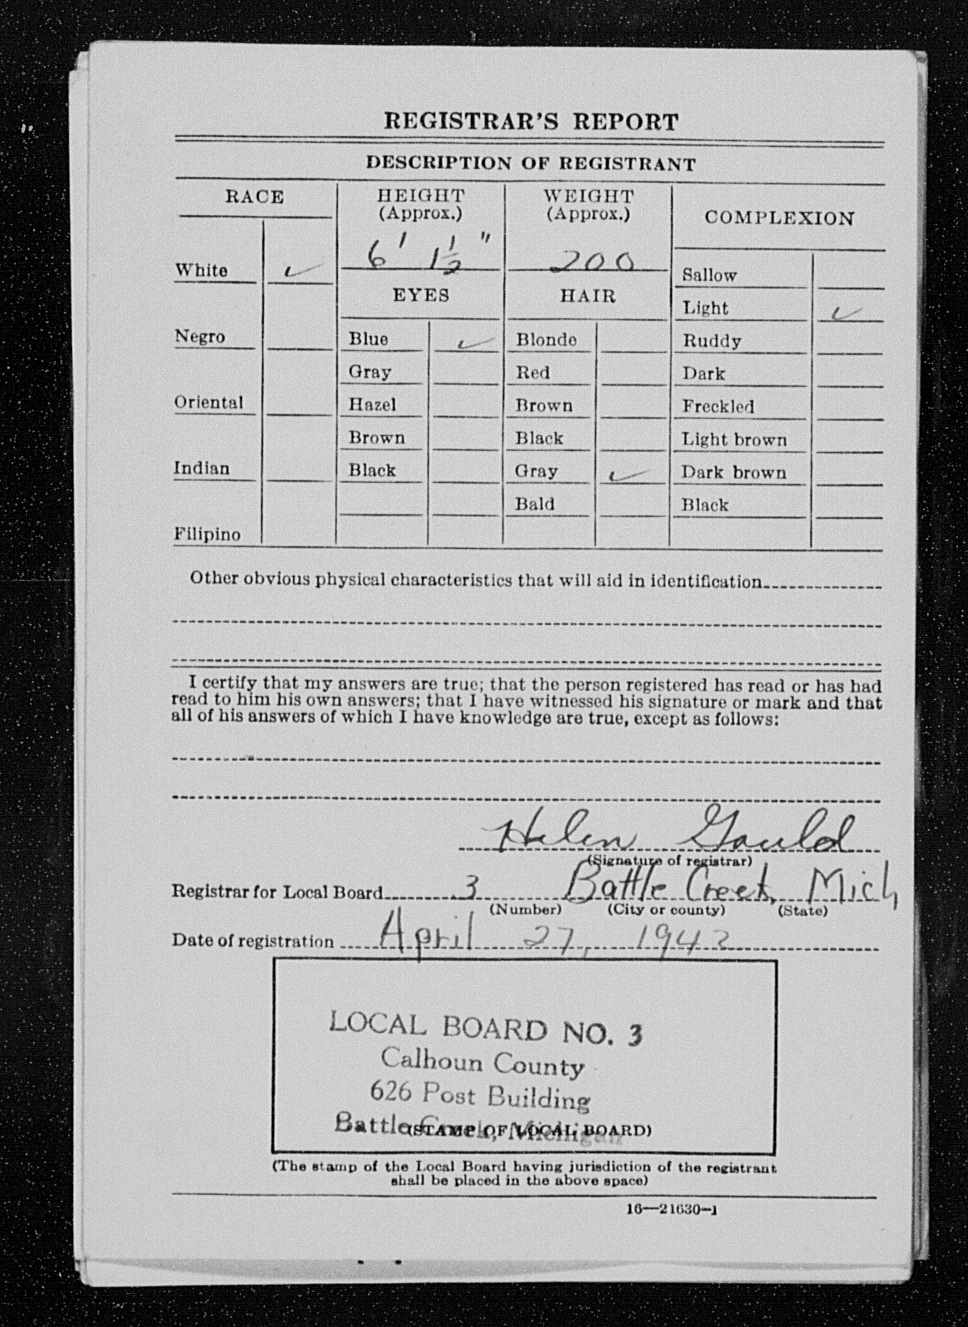 REGISTRAR'S REPORT
DESCRIPTION OF REGISTRANT
RACE
HEIGHT
(Approx.)
WEIGHT
(Approx.)
COMPLEXION
6' 1½"
200
White ✓
Sallow
EYES
HAIR
Light ✓
Negro
Blue ✓
Blonde
Ruddy
Gray
Red
Dark
Oriental
Hazel
Brown
Freckled
Brown
Black
Light brown
Indian
Black
Gray ✓
Dark brown
Bald
Black
Filipino
Other obvious physical characteristics that will aid in identification
I certify that my answers are true; that the person registered has read or has had
read to him his own answers; that I have witnessed his signature or mark and that
all of his answers of which I have knowledge are true, except as follows:
Helen Gauld
(Signature of registrar)
Registrar for Local Board 3 Battle Creek, Mich
(Number) (City or county) (State)
Date of registration April 27, 1942
LOCAL BOARD NO. 3
Calhoun County
626 Post Building
Battle Creek, Michigan
(STAMP OF LOCAL BOARD)
(The stamp of the Local Board having jurisdiction of the registrant
shall be placed in the above space)
16—21630-1